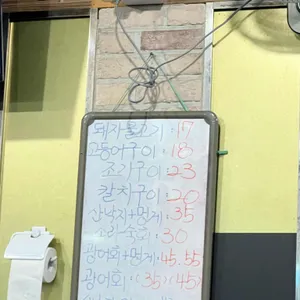 돼지불고기:17
고등어구이:18
조기구이:23
갈치구이:20
산낙지+멍게:35
소라숙회:30
광어회+멍게:45.55
광어회:(35)(45)